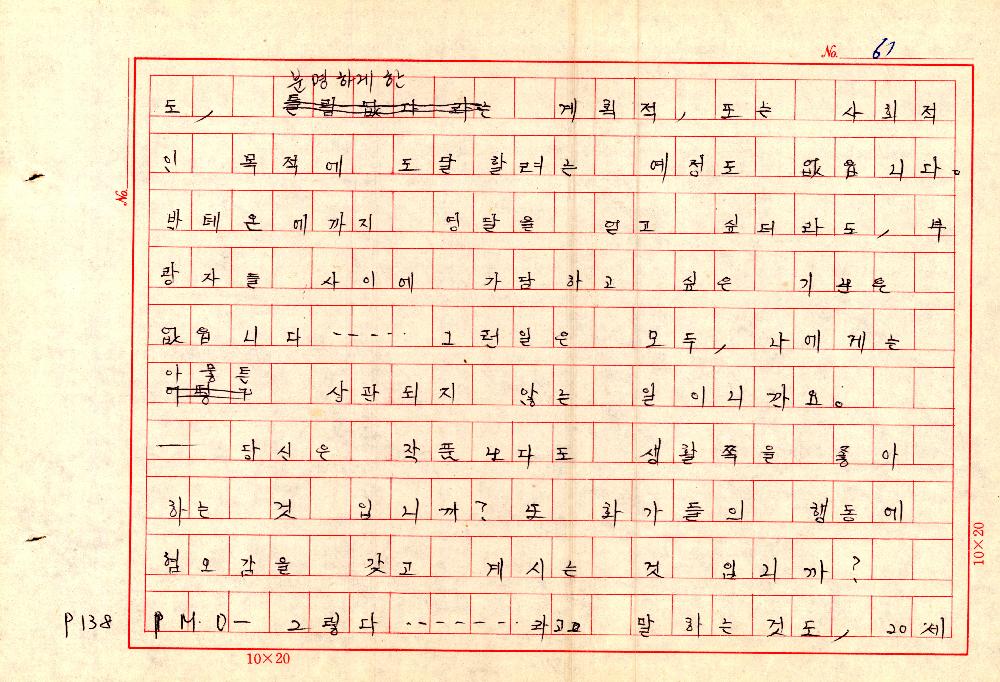 No. 61
분명하게 한
도, 틀림없다라는 계획적, 또는 사회적
인 목적에 도달할려는 예정도 없읍니다.
No.
반테온에까지 명달을 얻고 싶더라도, 부
랑자들 사이에 가담하고 싶은 기분은
없읍니다····· 그런일은 모두, 나에게는
아뭏튼
어떻구 상관되지 않는 일이니까요.
— 당신은 작품보다도 생활쪽을 좋아
하는 것 입니까? 또 화가들의 행동에
혐오감을 갖고 계시는 것 입니까?
P138 P M.D— 그렇다·······라고 말하는것도, 20세
10×20
10×20